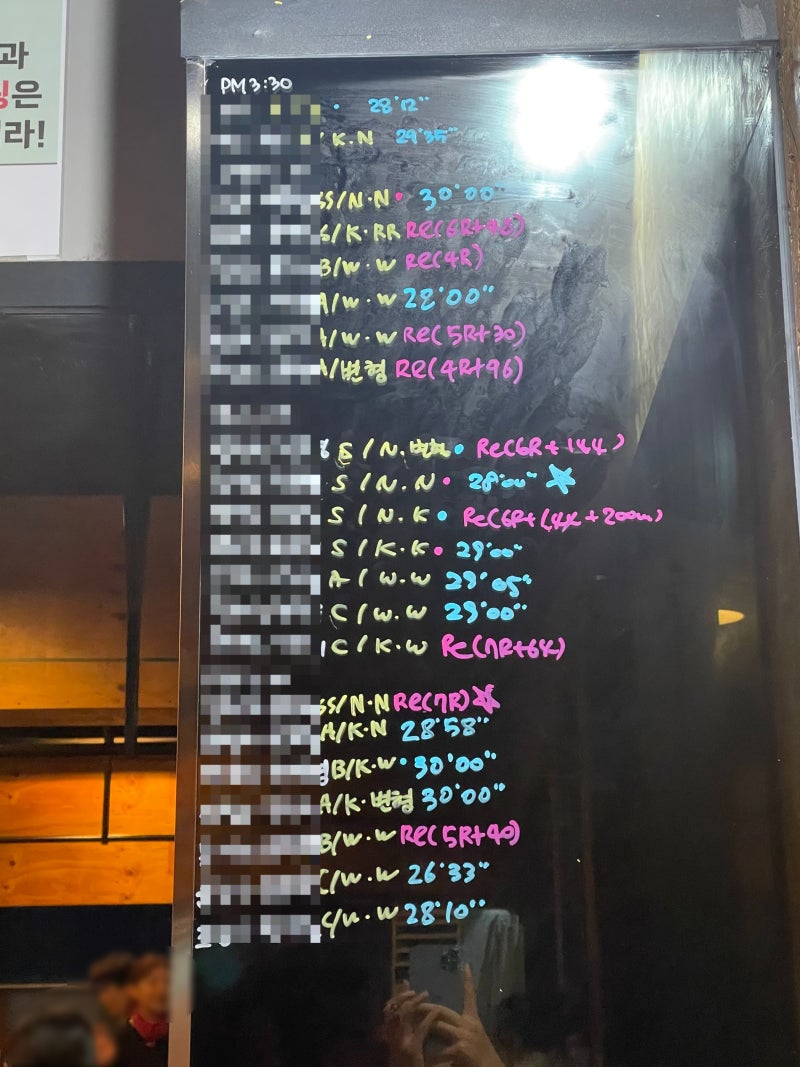 과
은
라!
PM 3:30
28'12"
/ K.N 29'35"
SS/N·N 30'00"
/K·RR Re(6R+48)
B/W·W Re(4R)
A/W·W 28'00"
/W·W Re(5R+30)
A/변형 Re(4R+96)
S/N.변형 Re(6R+144)
S/N.N 28'00"
S/N.K Re(6R+(4x+200m)
S/K.K 29'00"
A/W.W 29'05"
C/W.W 29'00"
C/K·W Re(7R+64)
SS/N·N Re(7R)
A/K·N 28'58"
B/K·W 30'00"
A/K·변형 30'00"
B/W·W Re(5R+40)
C/W·W 26'33"
C/K·W 28'10"